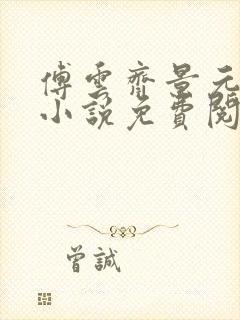 傅雲齊景元
小說免費閱
曾誠